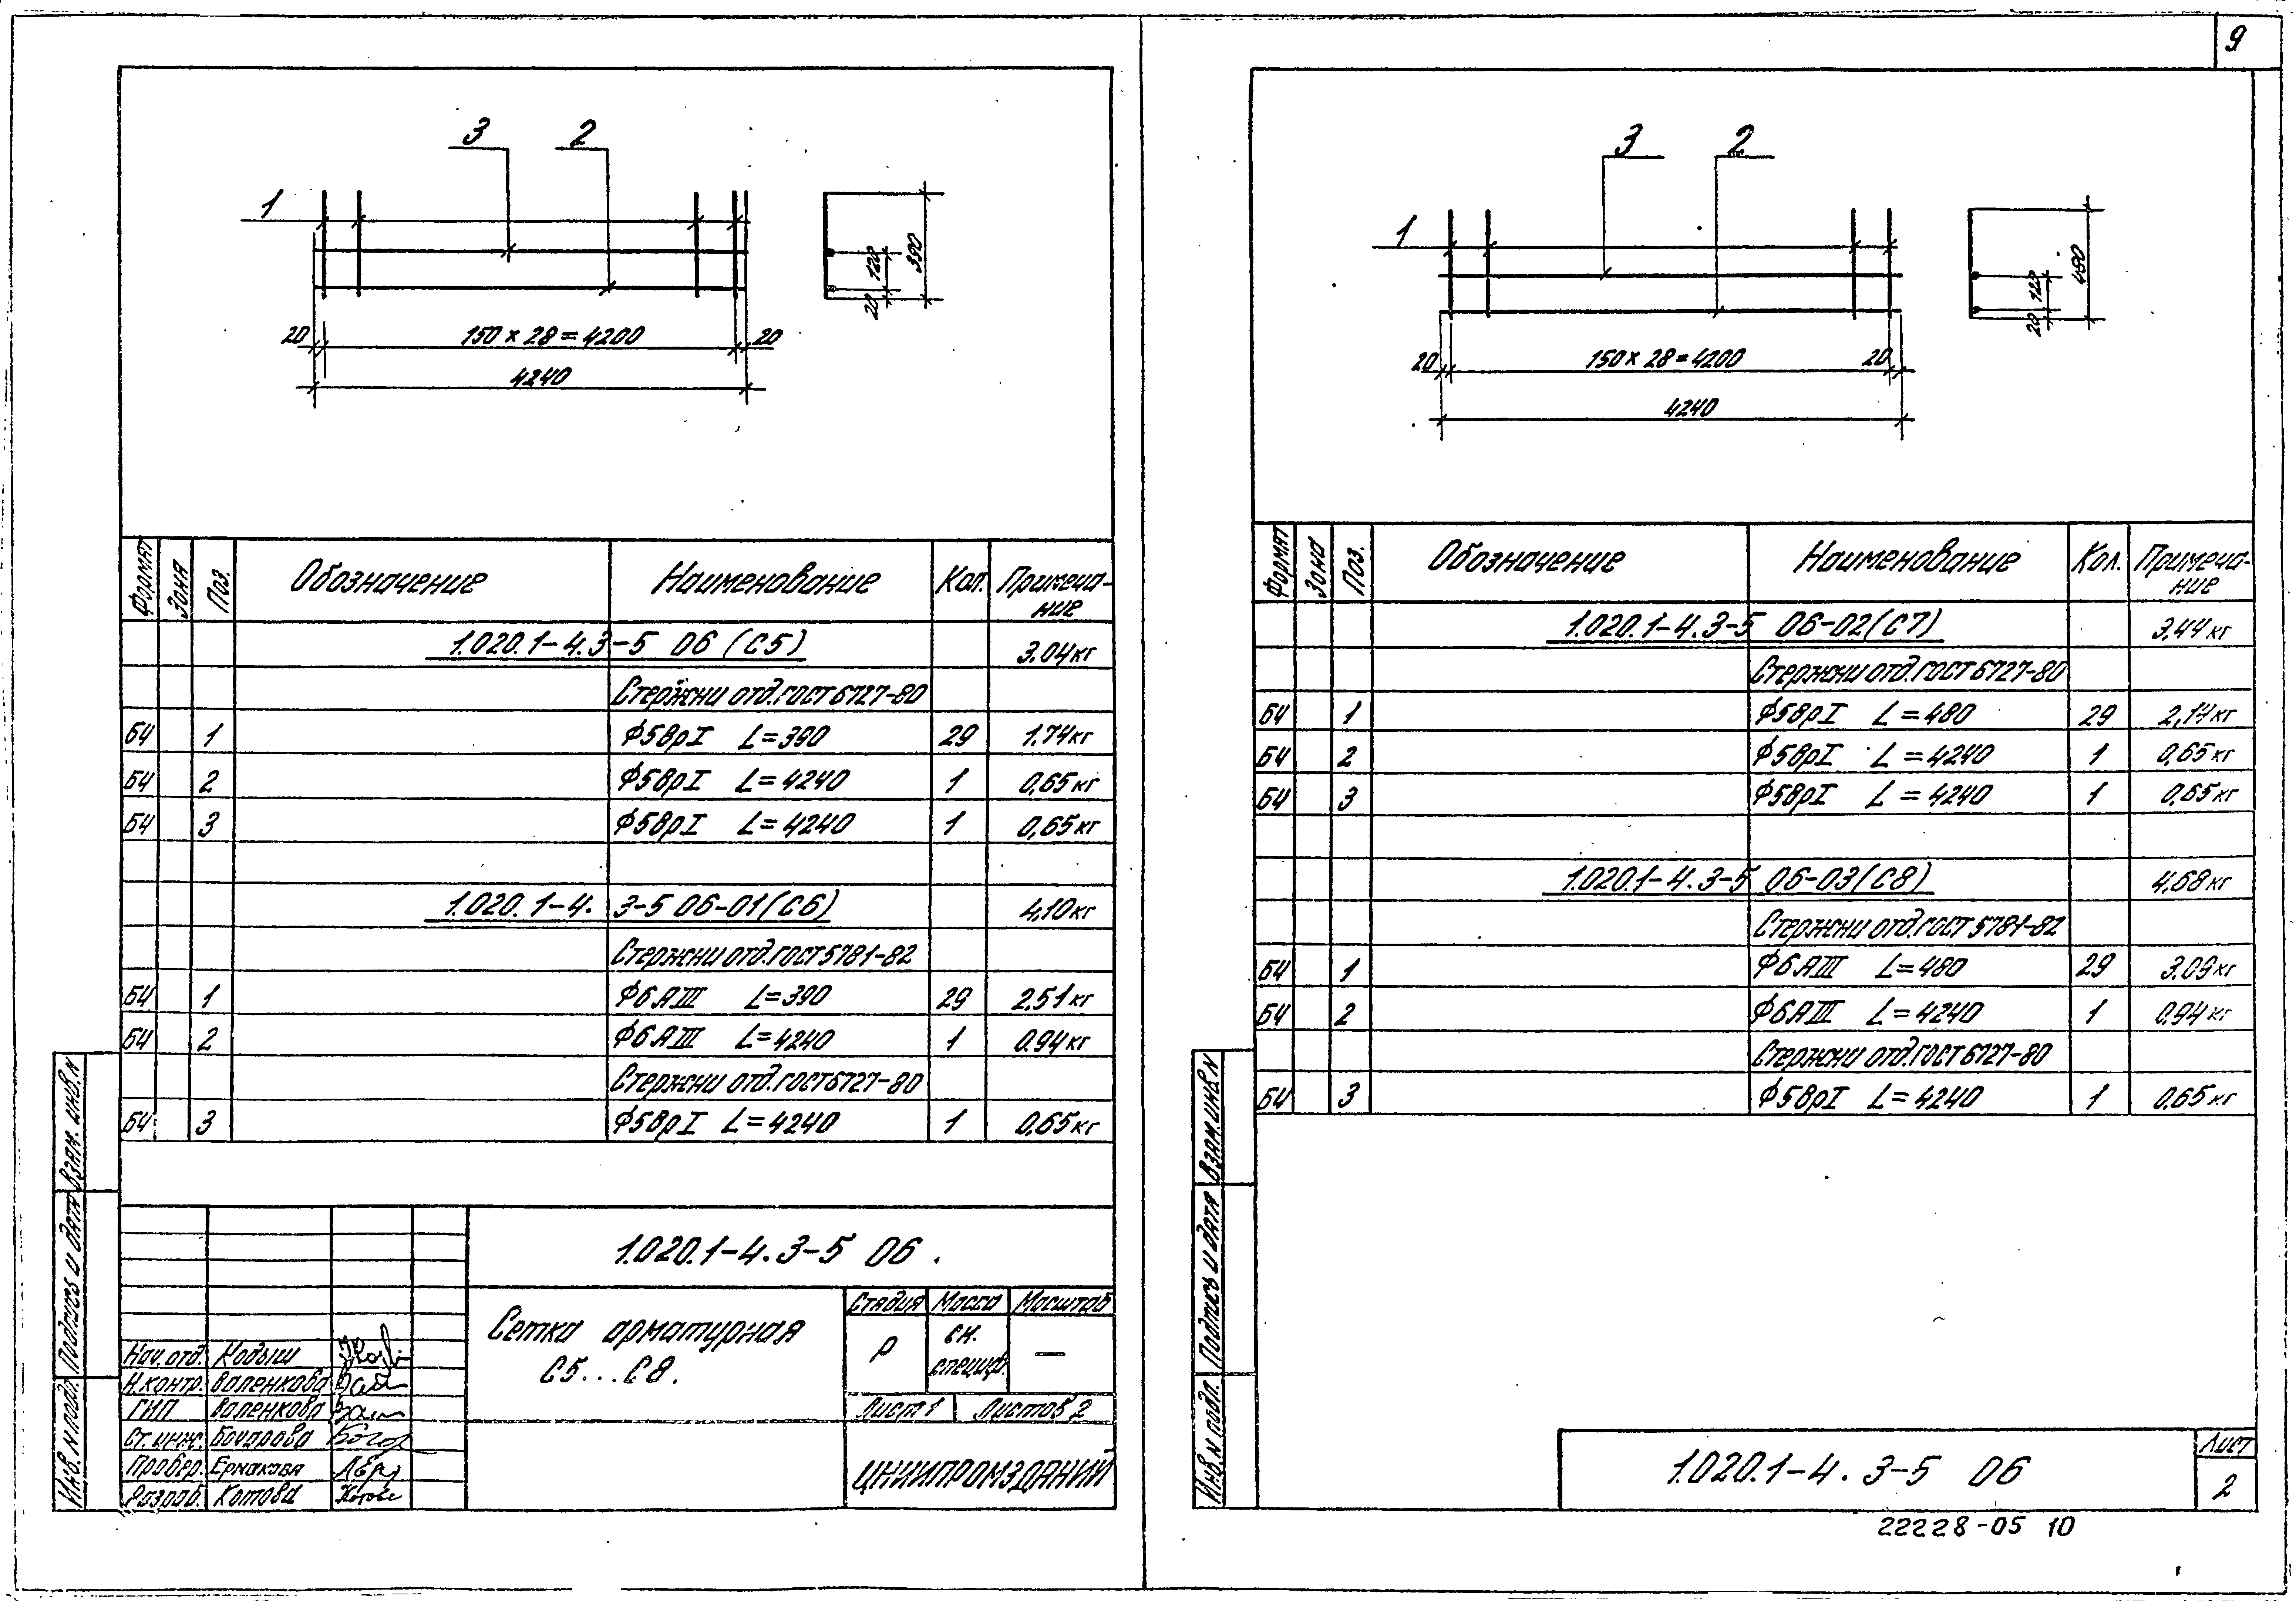 9
3 2
1
120
390
20
20 150 × 28 = 4200 20
4240
Формат Зона Поз. Обозначение Наименование Кол. Примеча-
ние
1.020.1-4.3-5 06 (С5) 3.04кг
Стержни отд. ГОСТ 6727-80
БЧ 1 Ф5ВрI L=390 29 1.74кг
БЧ 2 Ф5ВрI L=4240 1 0,65кг
БЧ 3 Ф5ВрI L=4240 1 0,65кг
1.020.1-4.3-5 06-01(С6) 4,10кг
Стержни отд. ГОСТ 5781-82
БЧ 1 Ф6АIII L=390 29 2,51кг
БЧ 2 Ф6АIII L=4240 1 0.94кг
Стержни отд. ГОСТ 6727-80
БЧ 3 Ф5ВрI L=4240 1 0,65кг
Взам. инв. N
Подпись и дата
Инв. N подл.
1.020.1-4.3-5 06
Сетка арматурная
С5...С8.
Стадия Масса Масштаб
Р см.
специф. —
Лист 1 Листов 2
ЦНИИПРОМЗДАНИЙ
Нач. отд. Кодыш
Н.контр. Валенкова
ГИП Валенкова
Ст. инж. Бочарова
Провер. Ермакова
Разраб. Котова
3 2
1
120
480
20
20 150 × 28 = 4200 20
4240
Формат Зона Поз. Обозначение Наименование Кол. Примеча-
ние
1.020.1-4.3-5 06-02(С7) 3,44кг
Стержни отд. ГОСТ 6727-80
БЧ 1 Ф5ВрI L=480 29 2,14кг
БЧ 2 Ф5ВрI L=4240 1 0,65кг
БЧ 3 Ф5ВрI L=4240 1 0,65кг
1.020.1-4.3-5 06-03(С8) 4,68кг
Стержни отд. ГОСТ 5781-82
БЧ 1 Ф6АIII L=480 29 3.09кг
БЧ 2 Ф6АIII L=4240 1 0,94кг
Стержни отд. ГОСТ 6727-80
БЧ 3 Ф5ВрI L=4240 1 0,65кг
Взам. инв. N
Подпись и дата
Инв. N подл.
1.020.1-4.3-5 06
Лист
2
22228-05 10